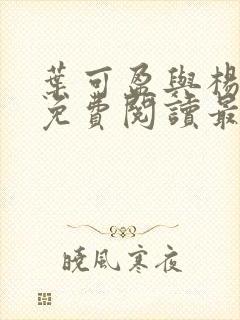 葉可盈與楊
免費閱讀最
曉風寒夜